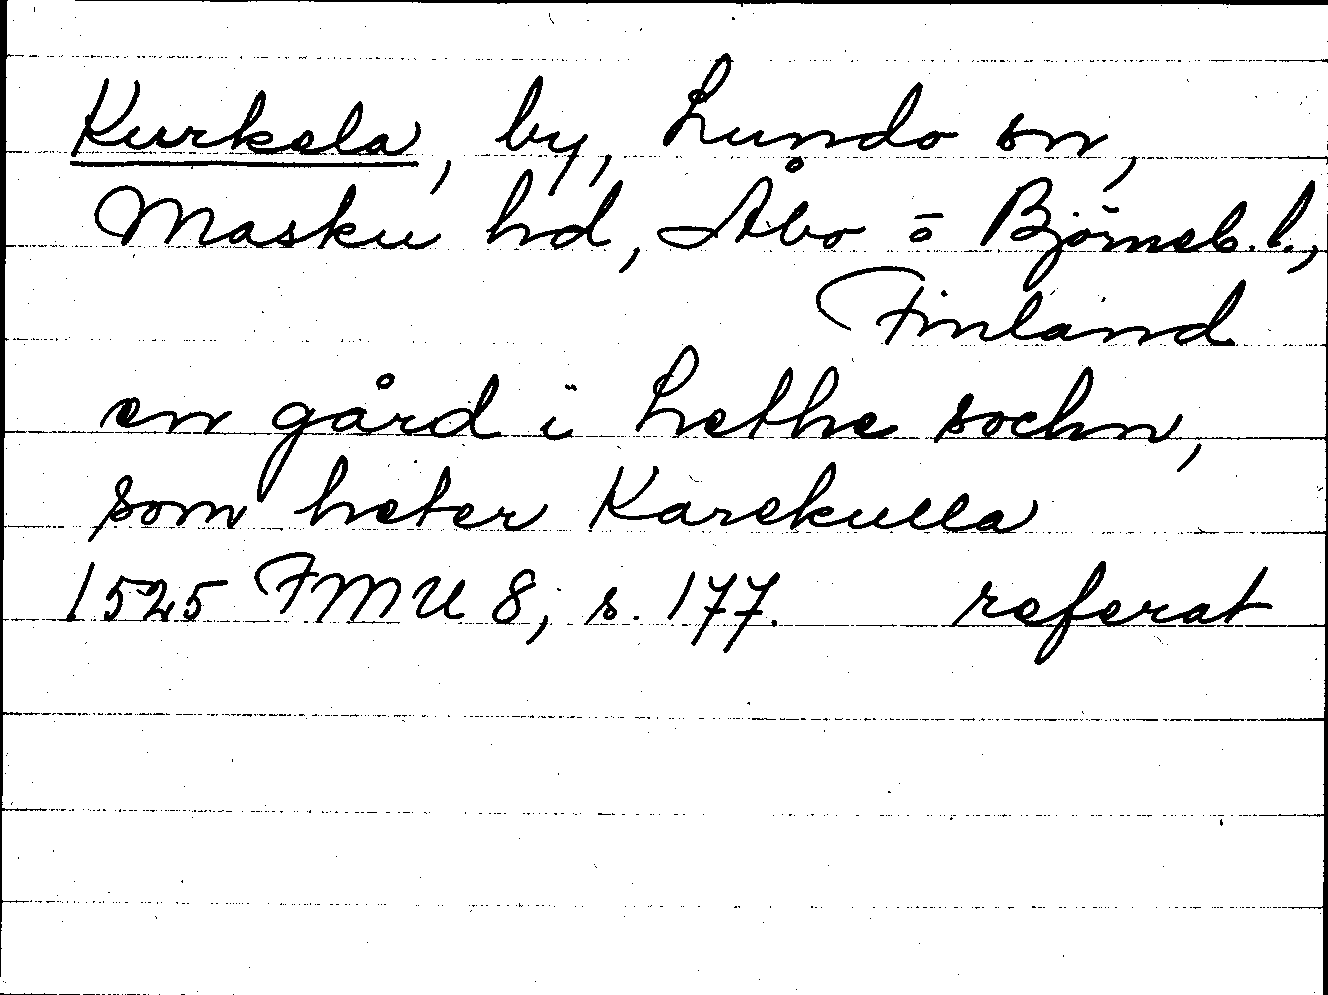 Kurkela, by, Lundo sn,
Masku hd, Åbo o Björneb. l.,
Finland
en gård i Lethe sochn,
som heter Karekulla
1525 FMU 8, s. 177. referat